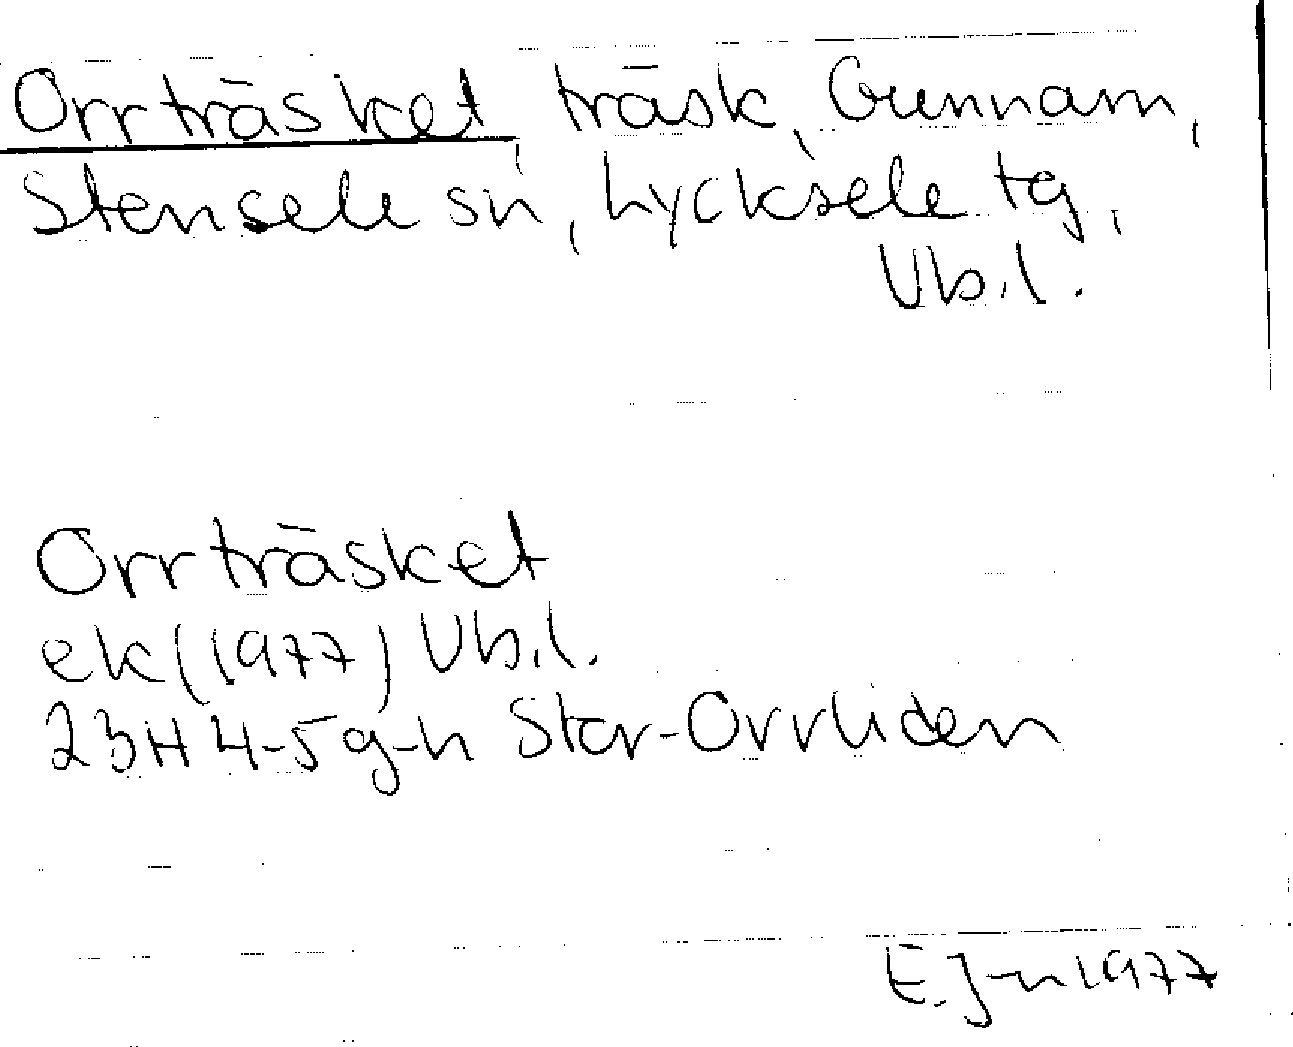 Orrträsket, träsk, Gunnarn,
Stensele sn, Lycksele tg,
Vb.l.
Orrträsket
ek (1977) Vb.l.
23H 4-5 g-h Stor-Orrliden
E.J-n 1977